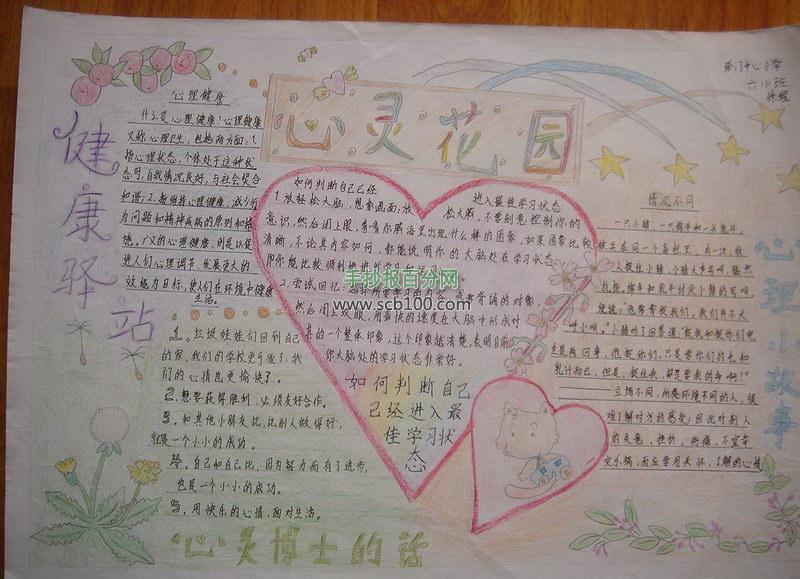 心灵花园
六(1)班
健康驿站
心理健康
什么是心理健康?心理健康
又称心理卫生,包括两方面:1.
指心理状态,个体处于这种状
态时,自我情况良好,与社会契合
和谐;2.
为问题和精神疾病的原则和措
施。广义的心理健康,是以促
进人们心理调节、发展更大的
效能为目标,使人们在环境中健康
生活。
1.垃圾娃娃们回到自己
的家,我们的学校更干净了,我
们的心情也更愉快了。
2.想要获得胜利,必须友好合作。
3.和其他小朋友比,比别人做得好,
就是一个小小的成功。
4.自己和自己比,因为努力而有了进步,
也是一个小小的成功。
5.用快乐的心情,面对生活。
心灵博士的话
如何判断自己已经
进入最佳学习状态
1.放轻松大脑,想象画面,放
松大脑,不要刻意控制你的
意识,然后闭上眼,看看你脑海里出现什么样的图像,如果图像比较
清晰,不论其内容如何,都能说明你的大脑处在学习状态
2.尝试回忆
要背诵的对像,
然后闭上双眼,用最快的速度在大脑中形成对
其的一个整体印象,这个印象越清楚,表明目前
你大脑处的学习状态非常好。
如何判断自己
已经进入最
佳学习状
态
手抄报百分网
www.scb100.com
心理小故事
情况不同
一只小猪、一只绵羊和一头乳牛,
被关在同一个畜栏里。有一次,牧
人捉住小猪,小猪大声号叫,猛烈
地抗拒。绵羊和乳牛讨厌小猪的号叫,
便说:他常常捉我们,我们并不大
呼小叫。"小猪听了回答道:"捉我和捉你们完
全是两回事,他捉你们,只是要你们的毛和
乳汁而已,但是,捉住我,却是要我的命啊!"
立场不同、所处环境不同的人,很
难了解对方的感受;因此对别人
的失意、挫折、伤痛,不宜幸
灾乐祸,而应要用关怀、了解的心情